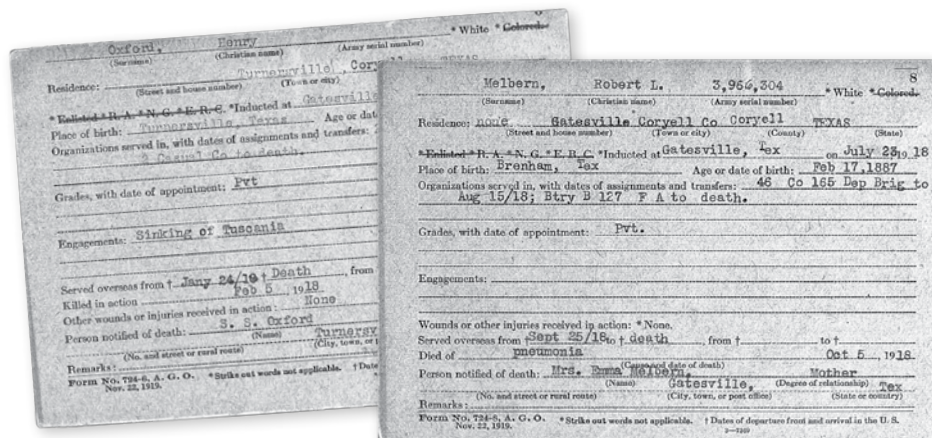 Oxford, Henry * White * Colored.
(Surname) (Christian name) (Army serial number)
Residence: Turnersville, Cory TEXAS
(Street and house number) (Town or city)
* Enlisted * R. A. * N. G. * E. R. C. *Inducted at Gatesville
Place of birth: Turnersville, Texas Age or dat
Organizations served in, with dates of assignments and transfers:
Casual Co to death.
Grades, with date of appointment: Pvt
Engagements: Sinking of Tuscania
Served overseas from † Jany 24/18 † Death, from
Killed in action Feb 5, 1918
Other wounds or injuries received in action: None
Person notified of death: S. S. Oxford
(Name) Turnersv
(No. and street or rural route) (City, town, or p
Remarks:
Form No. 724-6, A. G. O. *Strike out words not applicable. † Date
Nov. 22, 1919.
8
Melbern, Robert L. 3,966,304 * White * Colored.
(Surname) (Christian name) (Army serial number)
Residence: none Gatesville Coryell Co Coryell TEXAS
(Street and house number) (Town or city) (County) (State)
* Enlisted * R. A. * N. G. * E. R. C. *Inducted at Gatesville, Tex on July 23 1918
Place of birth: Brenham, Tex Age or date of birth: Feb 17,1887
Organizations served in, with dates of assignments and transfers: 46 Co 165 Dep Brig to
Aug 15/18; Btry B 127 F A to death.
Grades, with date of appointment: Pvt.
Engagements:
Wounds or other injuries received in action: * None.
Served overseas from † Sept 25/18 to † death, from † to †
Died of pneumonia Oct 5, 1918.
(Cause and date of death)
Person notified of death: Mrs. Emma Melbern, Mother
(Name) (Degree of relationship)
Gatesville, Tex
(No. and street or rural route) (City, town, or post office) (State or country)
Remarks:
Form No. 724-6, A. G. O. * Strike out words not applicable. † Dates of departure from and arrival in the U. S.
Nov. 22, 1919.